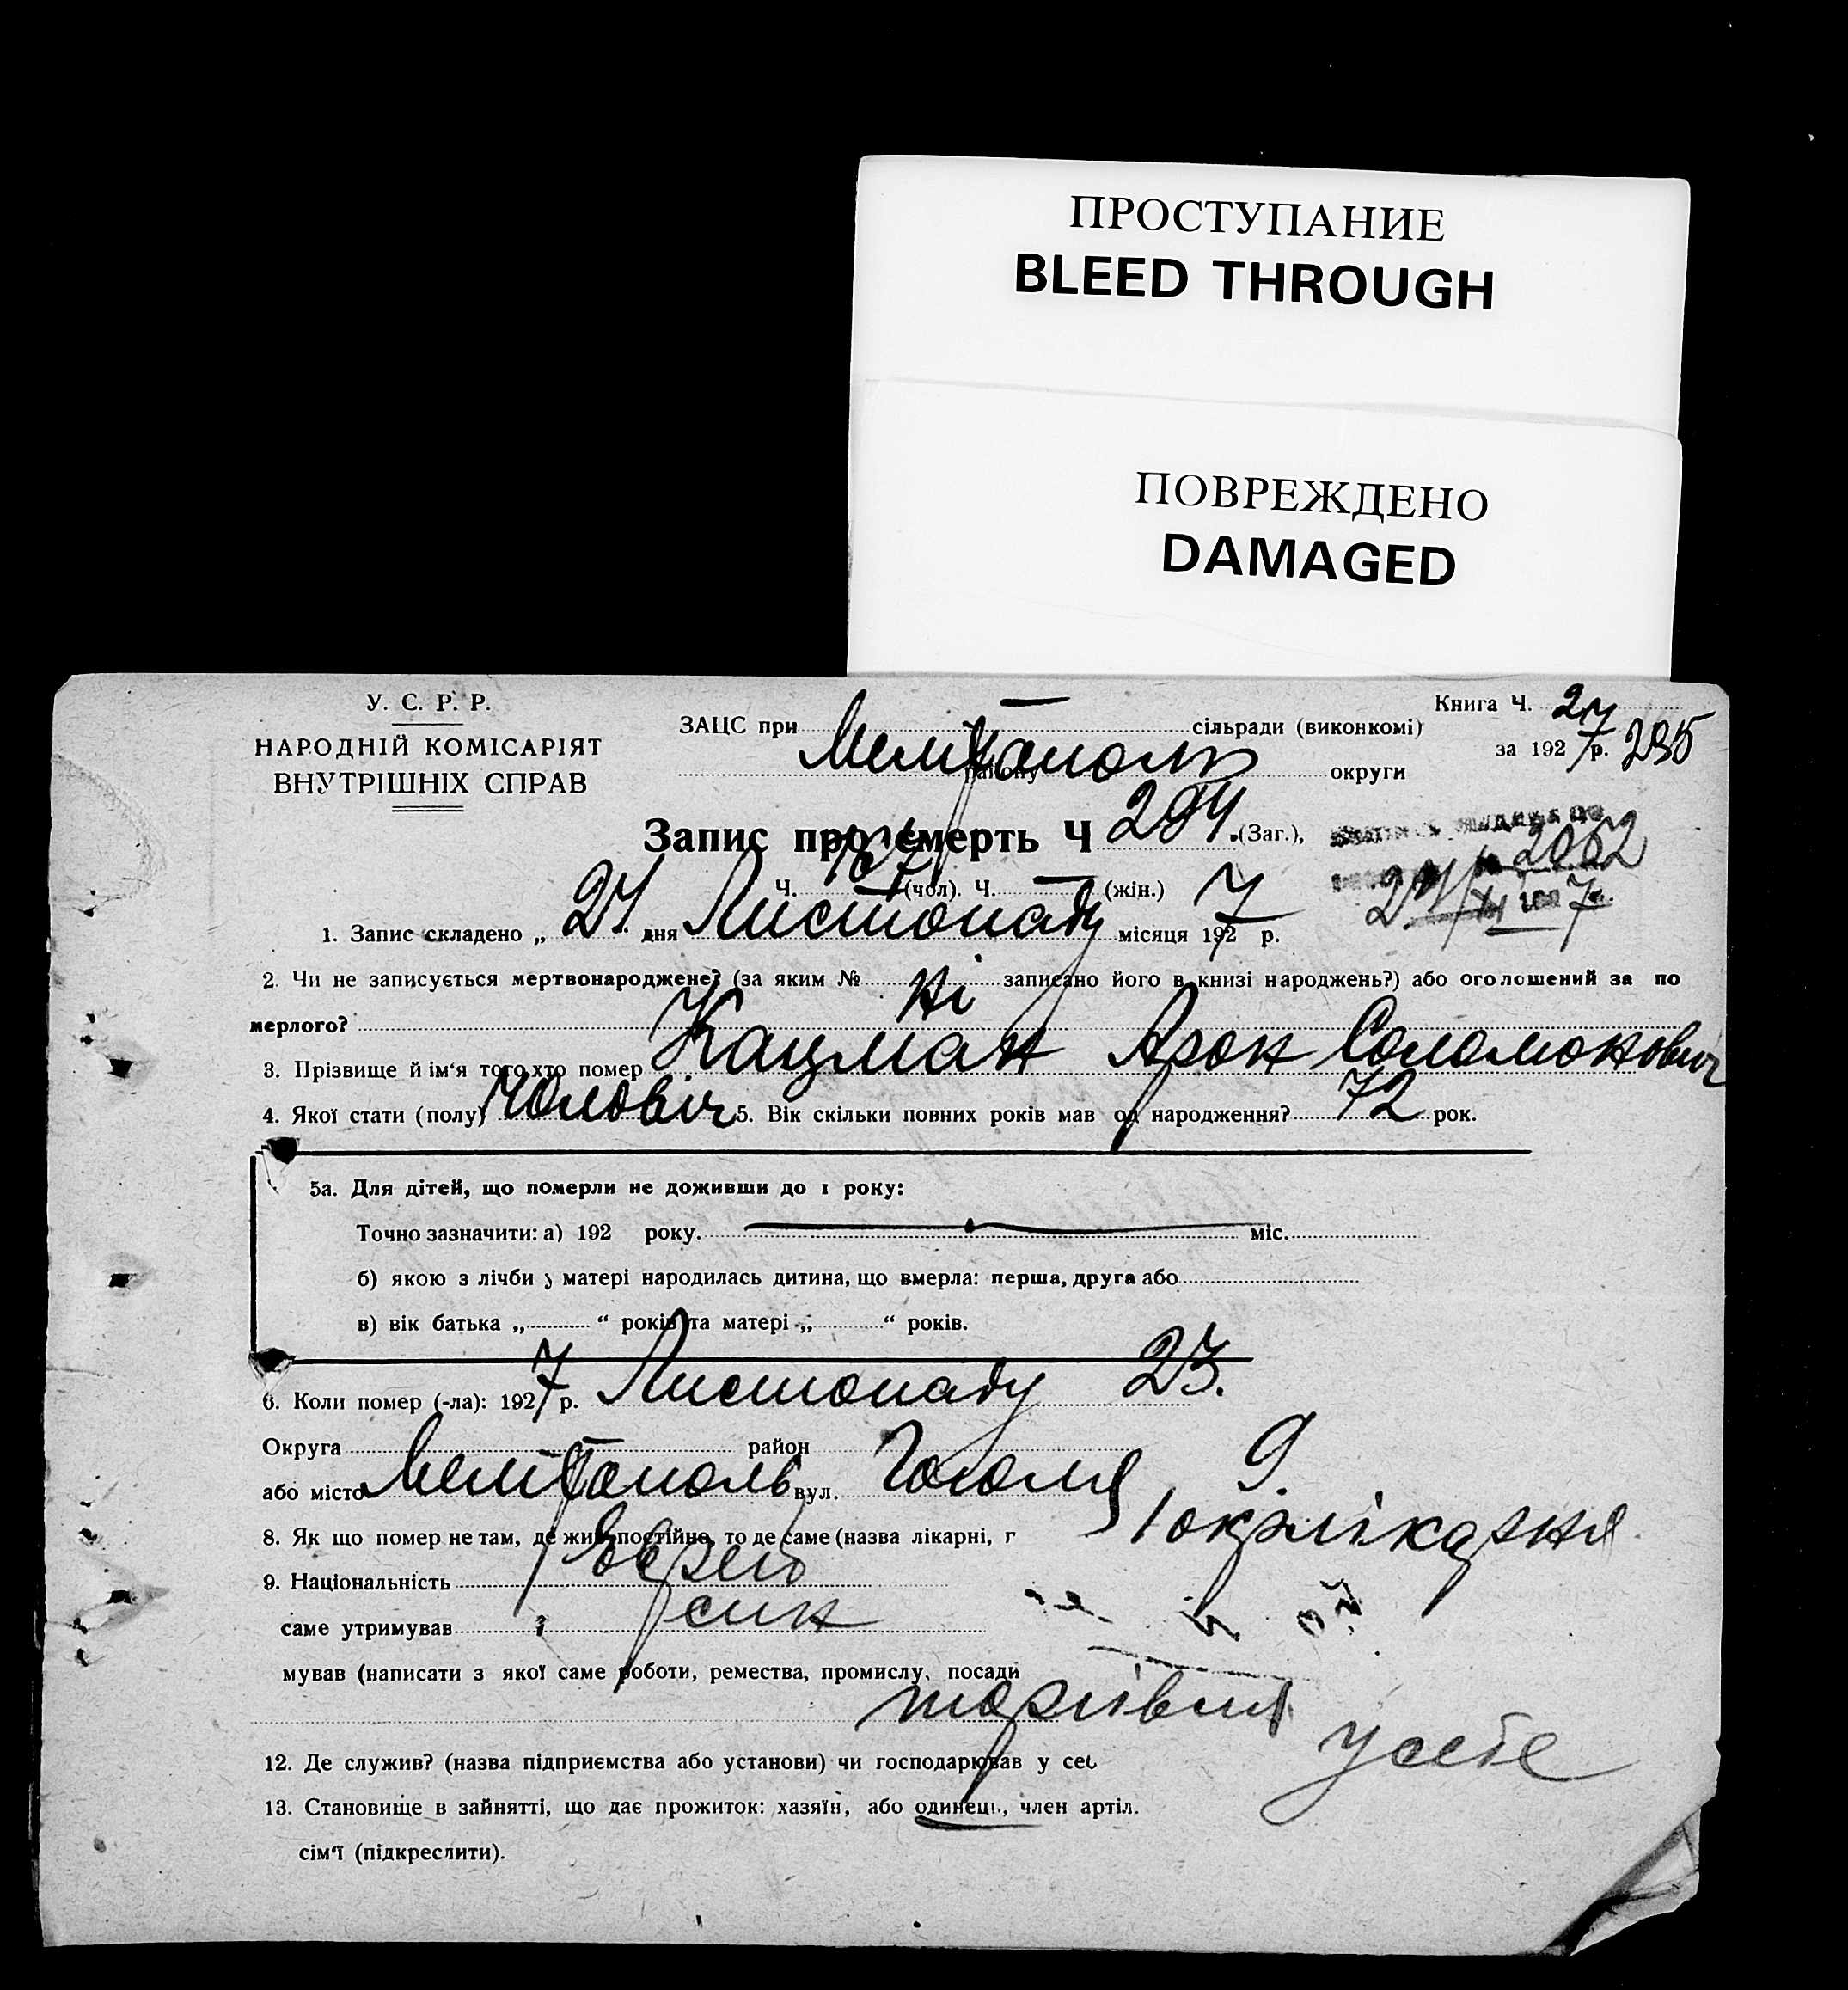 ПРОСТУПАНИЕ
BLEED THROUGH
ПОВРЕЖДЕНО
DAMAGED
У. С. Р. Р.
НАРОДНІЙ КОМІСАРІЯТ
ВНУТРІШНІХ СПРАВ
Книга Ч. 27
за 1927 р. 295
ЗАЦС при сільради (виконкомі)
Мелітополь
району округи
Запис про смерть Ч 294. (Заг.),
2062
Ч. 157 (чол). Ч. — (жін.)
24/XI 7
1. Запис складено „ 24 " дня Листопаду місяця 1927 р.
2. Чи не записується мертвонароджене? (за яким № ні записано його в книзі народжень?) або оголошений за по
мерлого?
3. Прізвище й ім'я того хто помер Кацман Арон Соломонович
4. Якої стати (полу) Чоловіч 5. Вік скільки повних років мав од народження? 72 рок.
5а. Для дітей, що померли не доживши до 1 року:
Точно зазначити: а) 192 року. міс.
б) якою з лічби у матері народилась дитина, що вмерла: перша, друга або
в) вік батька „ “ років та матері „ “ років.
6. Коли помер (-ла): 1927 р. Листопаду 23.
Округа район
або місто Мелітополь вул. Гоголя 9
8. Як що помер не там, де жив постійно, то де саме (назва лікарні, г 1 окрлікарня
9. Національність Еврей
саме утримував син
мував (написати з якої саме роботи, ремества, промислу, посади
торгівля
12. Де служив? (назва підприємства або установи) чи господарював у себ у себе
13. Становище в зайнятті, що дає прожиток: хазяїн, або одинець, член артіл.
сім'ї (підкреслити).